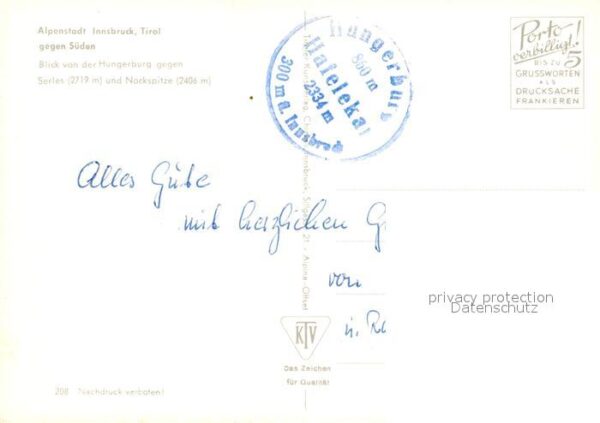 Alpenstadt Innsbruck, Tirol
gegen Süden
Blick von der Hungerburg gegen
Serles (2719 m) und Nockspitze (2406 m)
Hungerburg
860 m
Hafelekar
2334 m
300 m ü. Innsbruck
Porto
verbilligt!
BIS ZU 5
GRUSSWORTEN
ALS
DRUCKSACHE
FRANKIEREN
Alles Gute
mit herzlichen G
von
u. R
privacy protection
Datenschutz
Alpine-Offset
KTV
Das Zeichen
für Qualität
208 Nachdruck verboten!